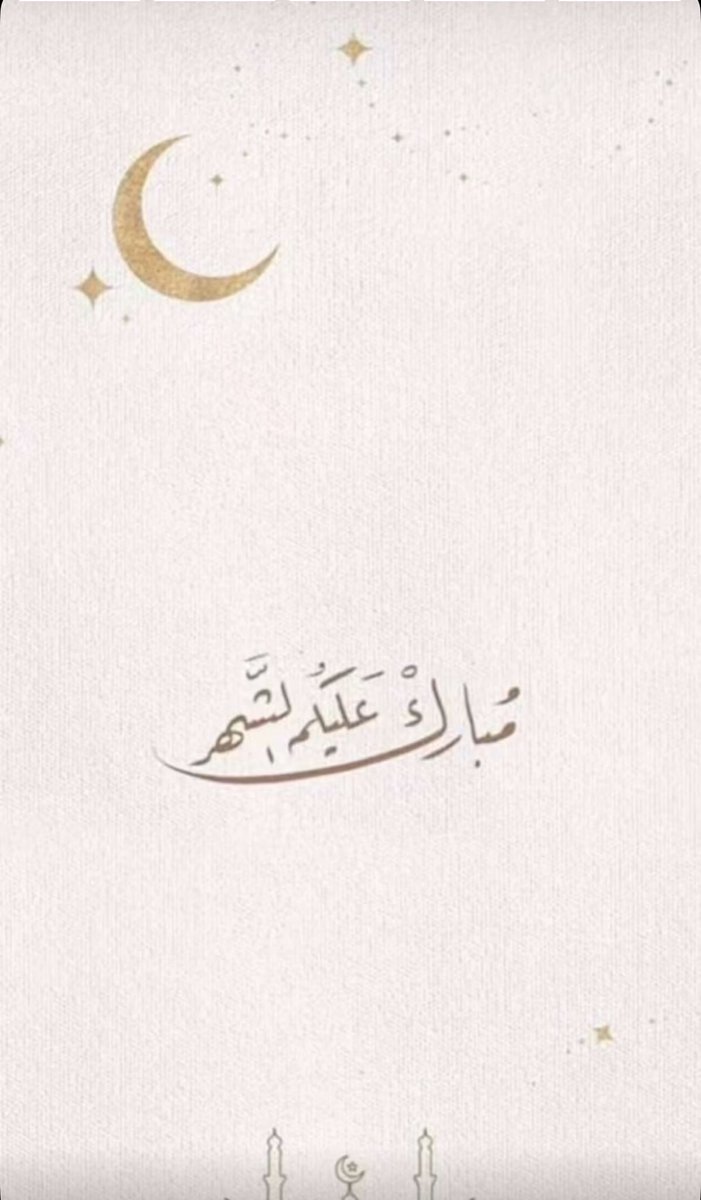 مُباركْ عَليَكُم الشَّهر